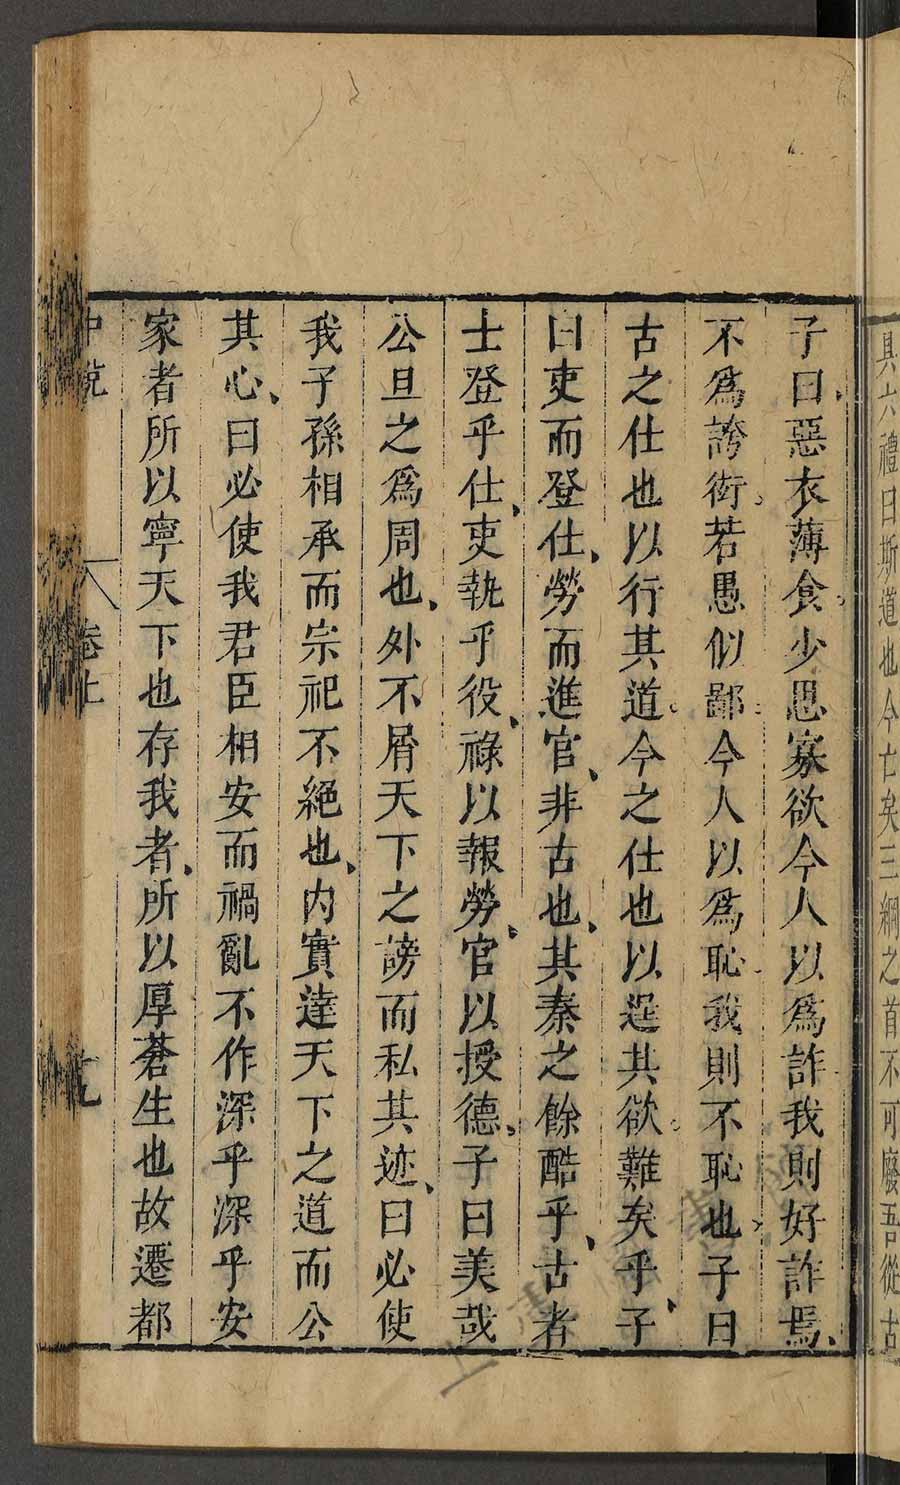 具六禮曰斯道也今亡矣三綱之首不可廢吾從古
子曰惡衣薄食少思寡欲今人以爲詐我則好詐焉
不爲誇衒若愚似鄙今人以爲恥我則不恥也子曰
古之仕也以行其道今之仕也以逞其欲難矣乎子
曰吏而登仕勞而進官非古也其秦之餘酷乎古者
士登乎仕吏執乎役祿以報勞官以授德子曰美哉
公旦之爲周也外不屑天下之謗而私其迹曰必使
我子孫相承而宗祀不絕也内實達天下之道而公
其心曰必使我君臣相安而禍亂不作深乎深乎安
家者所以寧天下也存我者所以厚蒼生也故遷都
中説 卷上